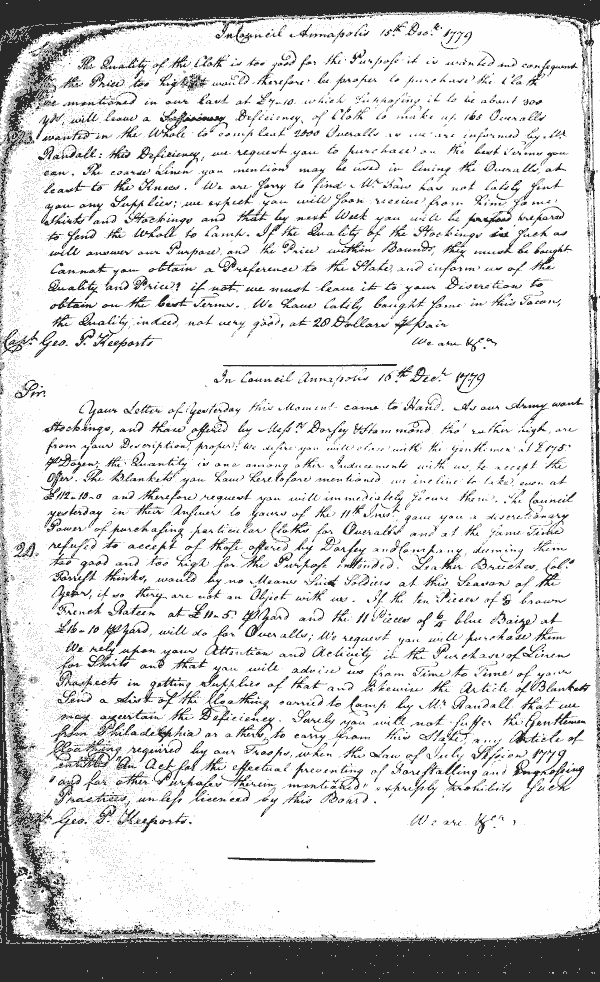 In Council Annapolis 15th Decr. 1779
The Quality of the Cloth is too good for the Purpose it is wanted and consequent
the Price too high it would therefore be proper to purchase the Cloth
we mentioned in our last at £7-10. which supposing it to be about 300
yds, will leave a Deficiency, of Cloth to make up 165 Overalls
wanted in the Whole to compleat 2000 Overalls as we are informed by Mr
Randall: this Deficiency, we request you to purchase on the best Terms you
can. The coarse Linen you mention may be used in lining the Overalls, at
least to the Knees. We are sorry to find Mr Faw has not lately sent
you any Supplies; we expect you will soon receive from him some
Shirts and Stockings and that by next Week you will be prepared
to send the Whole to Camp. If the Quality of the Stockings is such as
will answer our Purpose, and the Price within Bounds, they must be bought
Cannot you obtain a Preference to the State, and inform us of the
Quality and Price? if not, we must leave it to your Discretion to
obtain on the best Terms. We have lately bought some in this Town,
the Quality, indeed, not very good, at 28 Dollars ⅌ pair
Capt. Geo. P. Keeports We are &ca
In Council Annapolis 16th Decr. 1779
Sir.
Your Letter of Yesterday this Moment came to Hand. As our Army want
Stockings, and those offered by Messrs Dorsey & Hammond tho' rather high, are
from your Description, proper; We desire you will close with the Gentlemen at £175
⅌ Dozen, the Quantity is one among other Inducements with us, to accept the
Offer. The Blankets you have heretofore mentioned we incline to take, even at
£112-10-0 and therefore request you will immediately secure them. The Council
yesterday in their Answer to yours of the 11th Inst. gave you a discretionary
Power of purchasing particular Cloths for Overalls and at the same Time
24. refused to accept of those offered by Dorsey and Company, deeming them
too good and too high for the Purpose intended. Leather Breeches, Colo.
Forrest thinks, would by no Means suit Soldiers at this Season of the
Year, if so, they are not an Object with us. If the ten Pieces of brown
French Rateen at £11-5 ⅌ Yard and the 11 Pieces of 6/4 blue Baize at
£16-10 ⅌ Yard, will do for Overalls; We request you will purchase them
We rely upon your Attention and Activity in the Purchase of Linen
for Shirts and that you will advise us from Time to Time of your
Prospects in getting Supplies of that and likewise the Article of Blankets
Send a List of the Cloathing carried to Camp by Mr Randall that we
may ascertain the Deficiency. Surely you will not suffer the Gentlemen
from Philadelphia or others, to carry from this State, any Article of
Cloathing required by our Troops, when the Law of July Session 1779
entitled "An Act for the effectual preventing of Forestalling and Engrossing
"and for other Purposes therein mentioned" expressly prohibits such
Practices, unless licenced by this Board.
Geo. P. Keeports. We are &ca